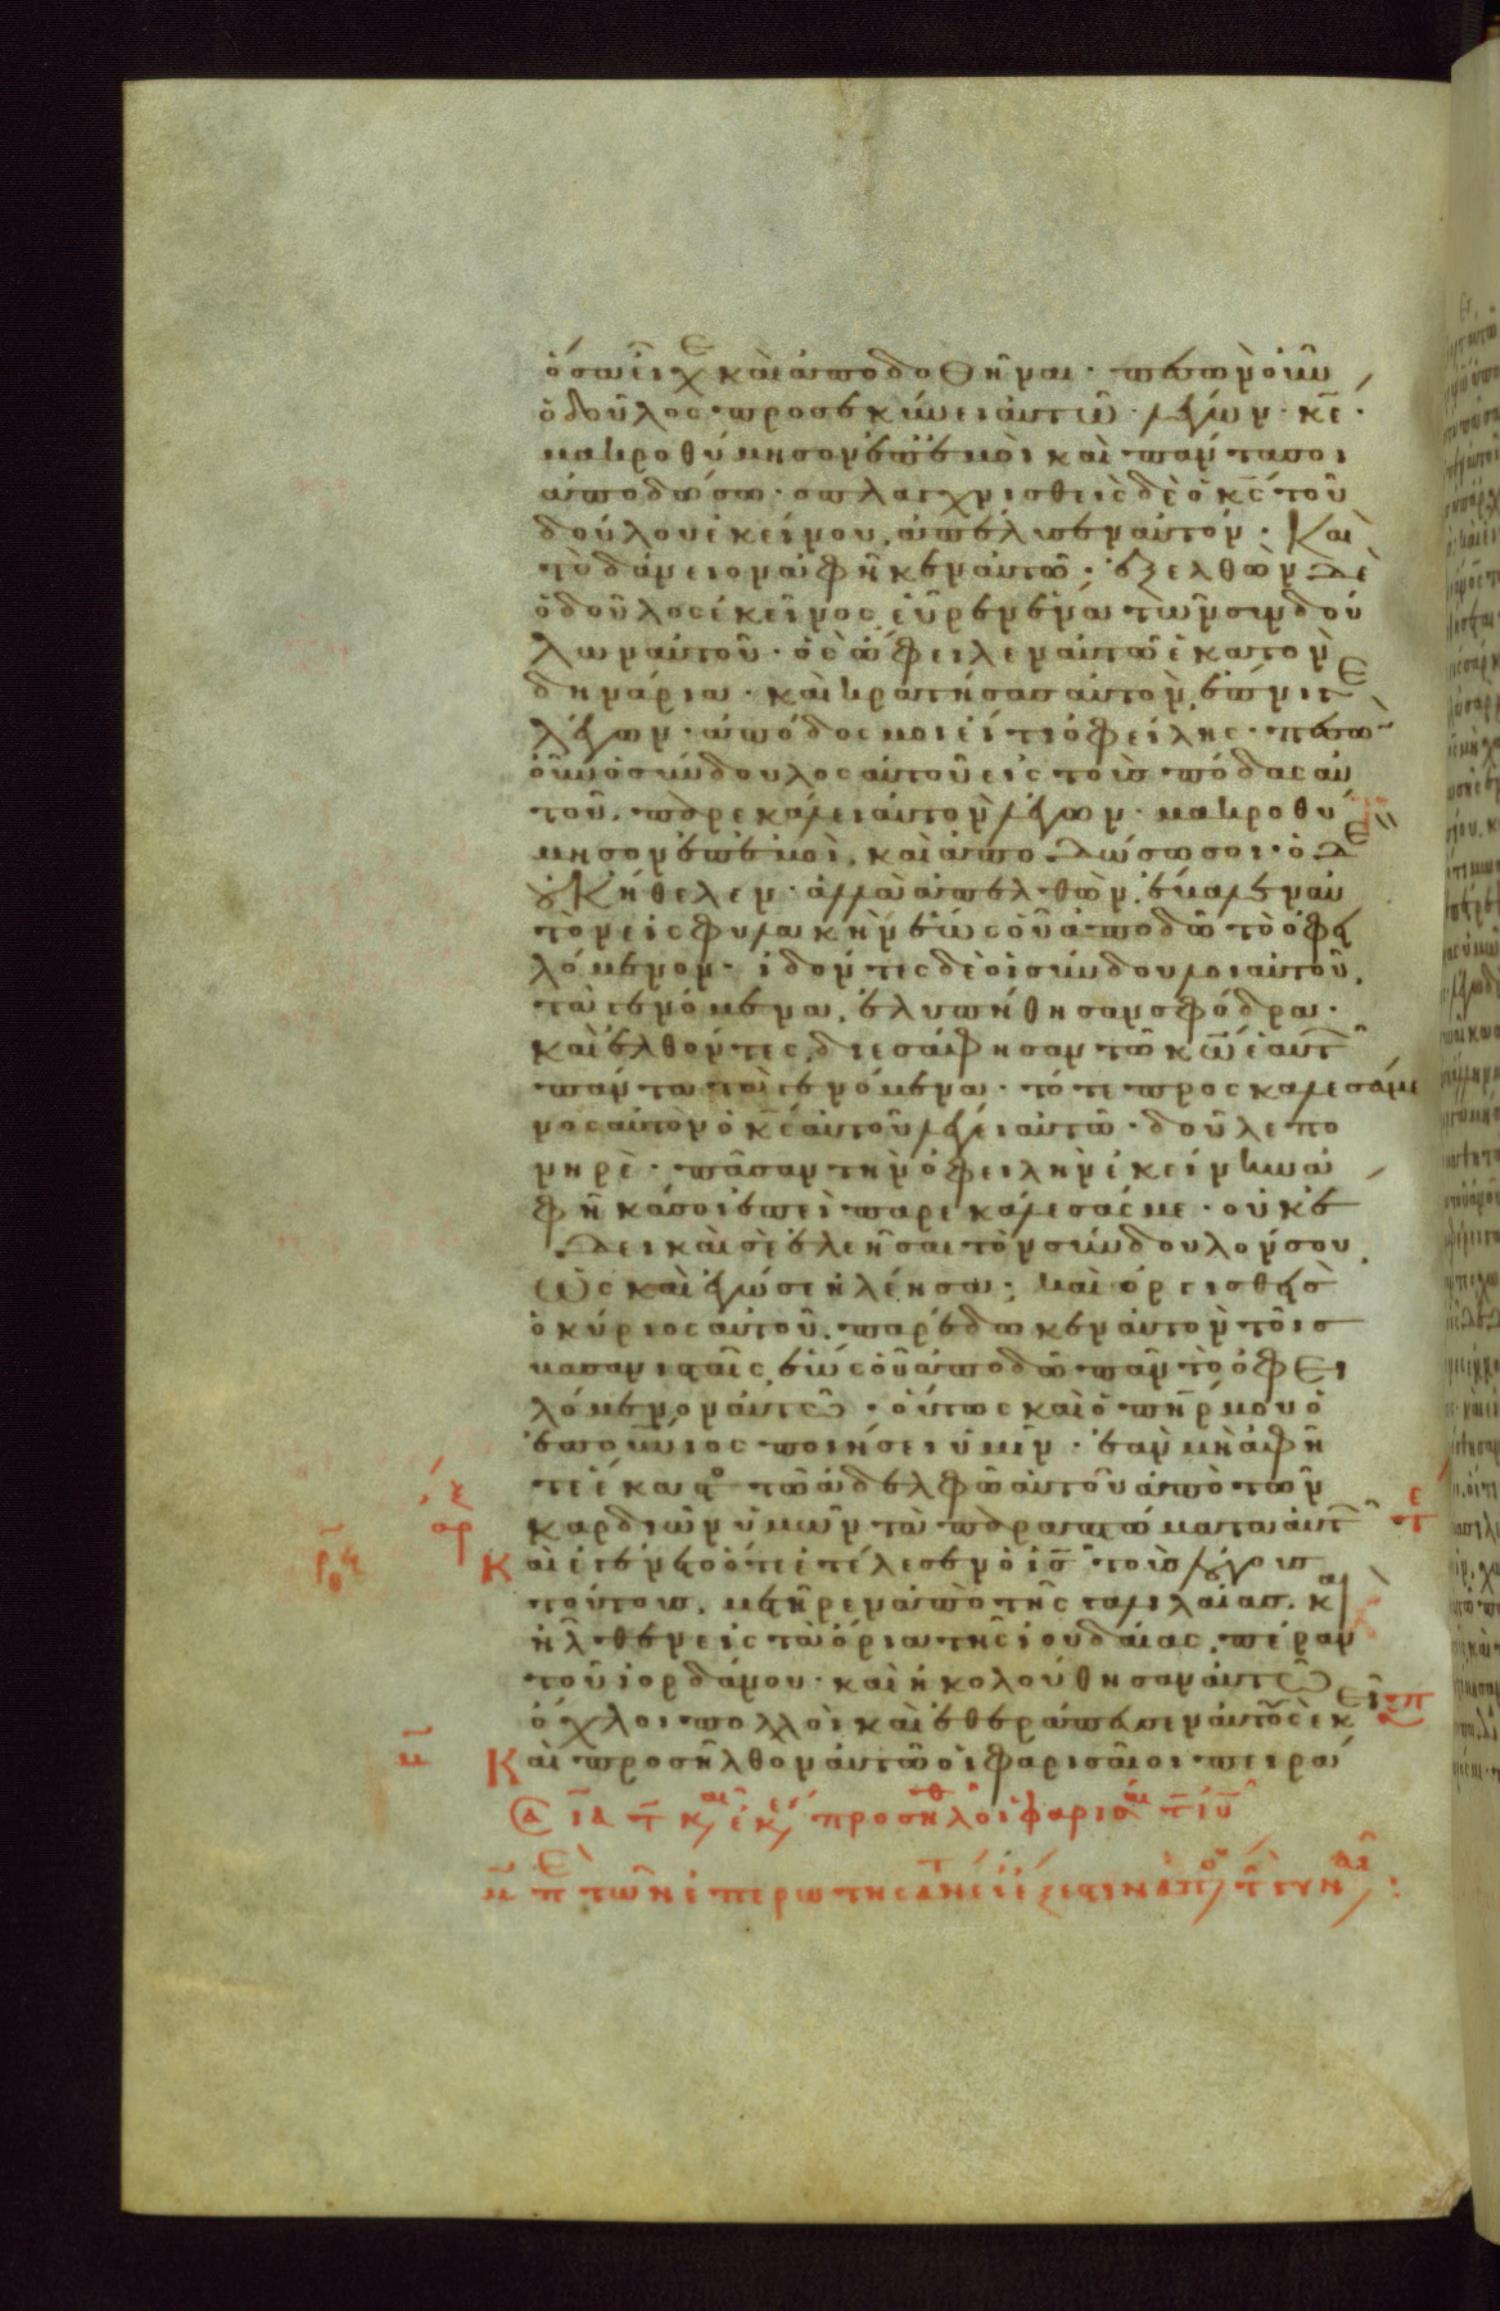 ὅσα εἶχε καὶ ἀποδοθῆναι· πεσὼν οὖν
ὁ δοῦλος προσεκύνει αὐτῶ λέγων· κε̄·
μακροθύμησον ἐπ' ἐμοὶ καὶ πάντα σοι
ἀποδώσω· σπλαγχνισθεὶς δὲ ὁ κς̄ τοῦ
δούλου ἐκείνου, ἀπέλυσεν αὐτόν· Καὶ
τὸ δάνειον ἀφῆκεν αὐτῶ· ἐξελθὼν δὲ
ὁ δοῦλος ἐκεῖνος εὗρεν ἕνα τῶν συνδού
λων αὐτοῦ· ὃς ὤφειλεν αὐτῶ ἑκατὸν
δηνάρια· καὶ κρατήσας αὐτὸν, ἔπνιγε
λέγων· ἀπόδος μοι εἴ τι ὀφείλης· πεσὼν
οὖν ὁ σύνδουλος αὐτοῦ εἰς τοὺς πόδας αὐ
τοῦ, παρεκάλει αὐτὸν λέγων· μακροθύ
μησον ἐπ' ἐμοὶ, καὶ ἀποδώσω σοι· ὁ δὲ
οὐκ ἤθελεν· ἀλλὰ ἀπελθὼν, ἔβαλεν αὐ
τὸν εἰς φυλακὴν ἕως οὗ ἀποδῶ τὸ ὀφει
λόμενον· ἰδόντες δὲ οἱ σύνδουλοι αὐτοῦ,
τὰ γενόμενα, ἐλυπήθησαν σφόδρα·
καὶ ἐλθόντες, διεσάφησαν τῶ κω̄ ἑαυτ
πάντα τὰ γενόμενα· τότε προσκαλεσάμε
νος αὐτὸν ὁ κς̄ αὐτοῦ λέγει αὐτῶ· δοῦλε πο
νηρὲ· πᾶσαν τὴν ὀφειλὴν ἐκείνην ἀ
φῆκά σοι ἐπεὶ παρεκάλεσάς με· οὐκ ἔ
δει καὶ σὲ ἐλεῆσαι τὸν σύνδουλόν σου,
ὡς καὶ ἐγώ σε ἠλέησα; καὶ ὀργισθεὶς
ὁ κύριος αὐτοῦ, παρέδωκεν αὐτὸν τοῖς
βασανισταῖς, ἕως οὗ ἀποδῶ πᾶν τὸ ὀφει
λόμενον αὐτῶ· οὕτως καὶ ὁ πηρ̄ μου ὁ
ἐπουνιος ποιήσει ὑμῖν· ἐὰν μὴ ἀφῆ
τε ἕκαστος τῶ ἀδελφῶ αὐτοῦ ἀπὸ τῶν
καρδιῶν ὑμῶν τὰ παραπτώματα αὐτ
Καὶ ἐγένετο ὅτε ἐτέλεσεν ὁ ις̄ τοὺς λόγους
τούτους, μετῆρεν ἀπὸ τῆς γαλιλαίας, καὶ
ἦλθεν εἰς τὰ ὅρια τῆς ἰουδαίας, πέραν
τοῦ ἰορδάνου· καὶ ἠκολούθησαν αὐτῶ
ὄχλοι πολλοὶ καὶ ἐθεράπευσεν αὐτοὺς ἐκεῖ
Καὶ προσῆλθον αὐτῶ οἱ φαρισαῖοι πειρά
προσῆλθ οἱ φαρισαι τ ιῦ